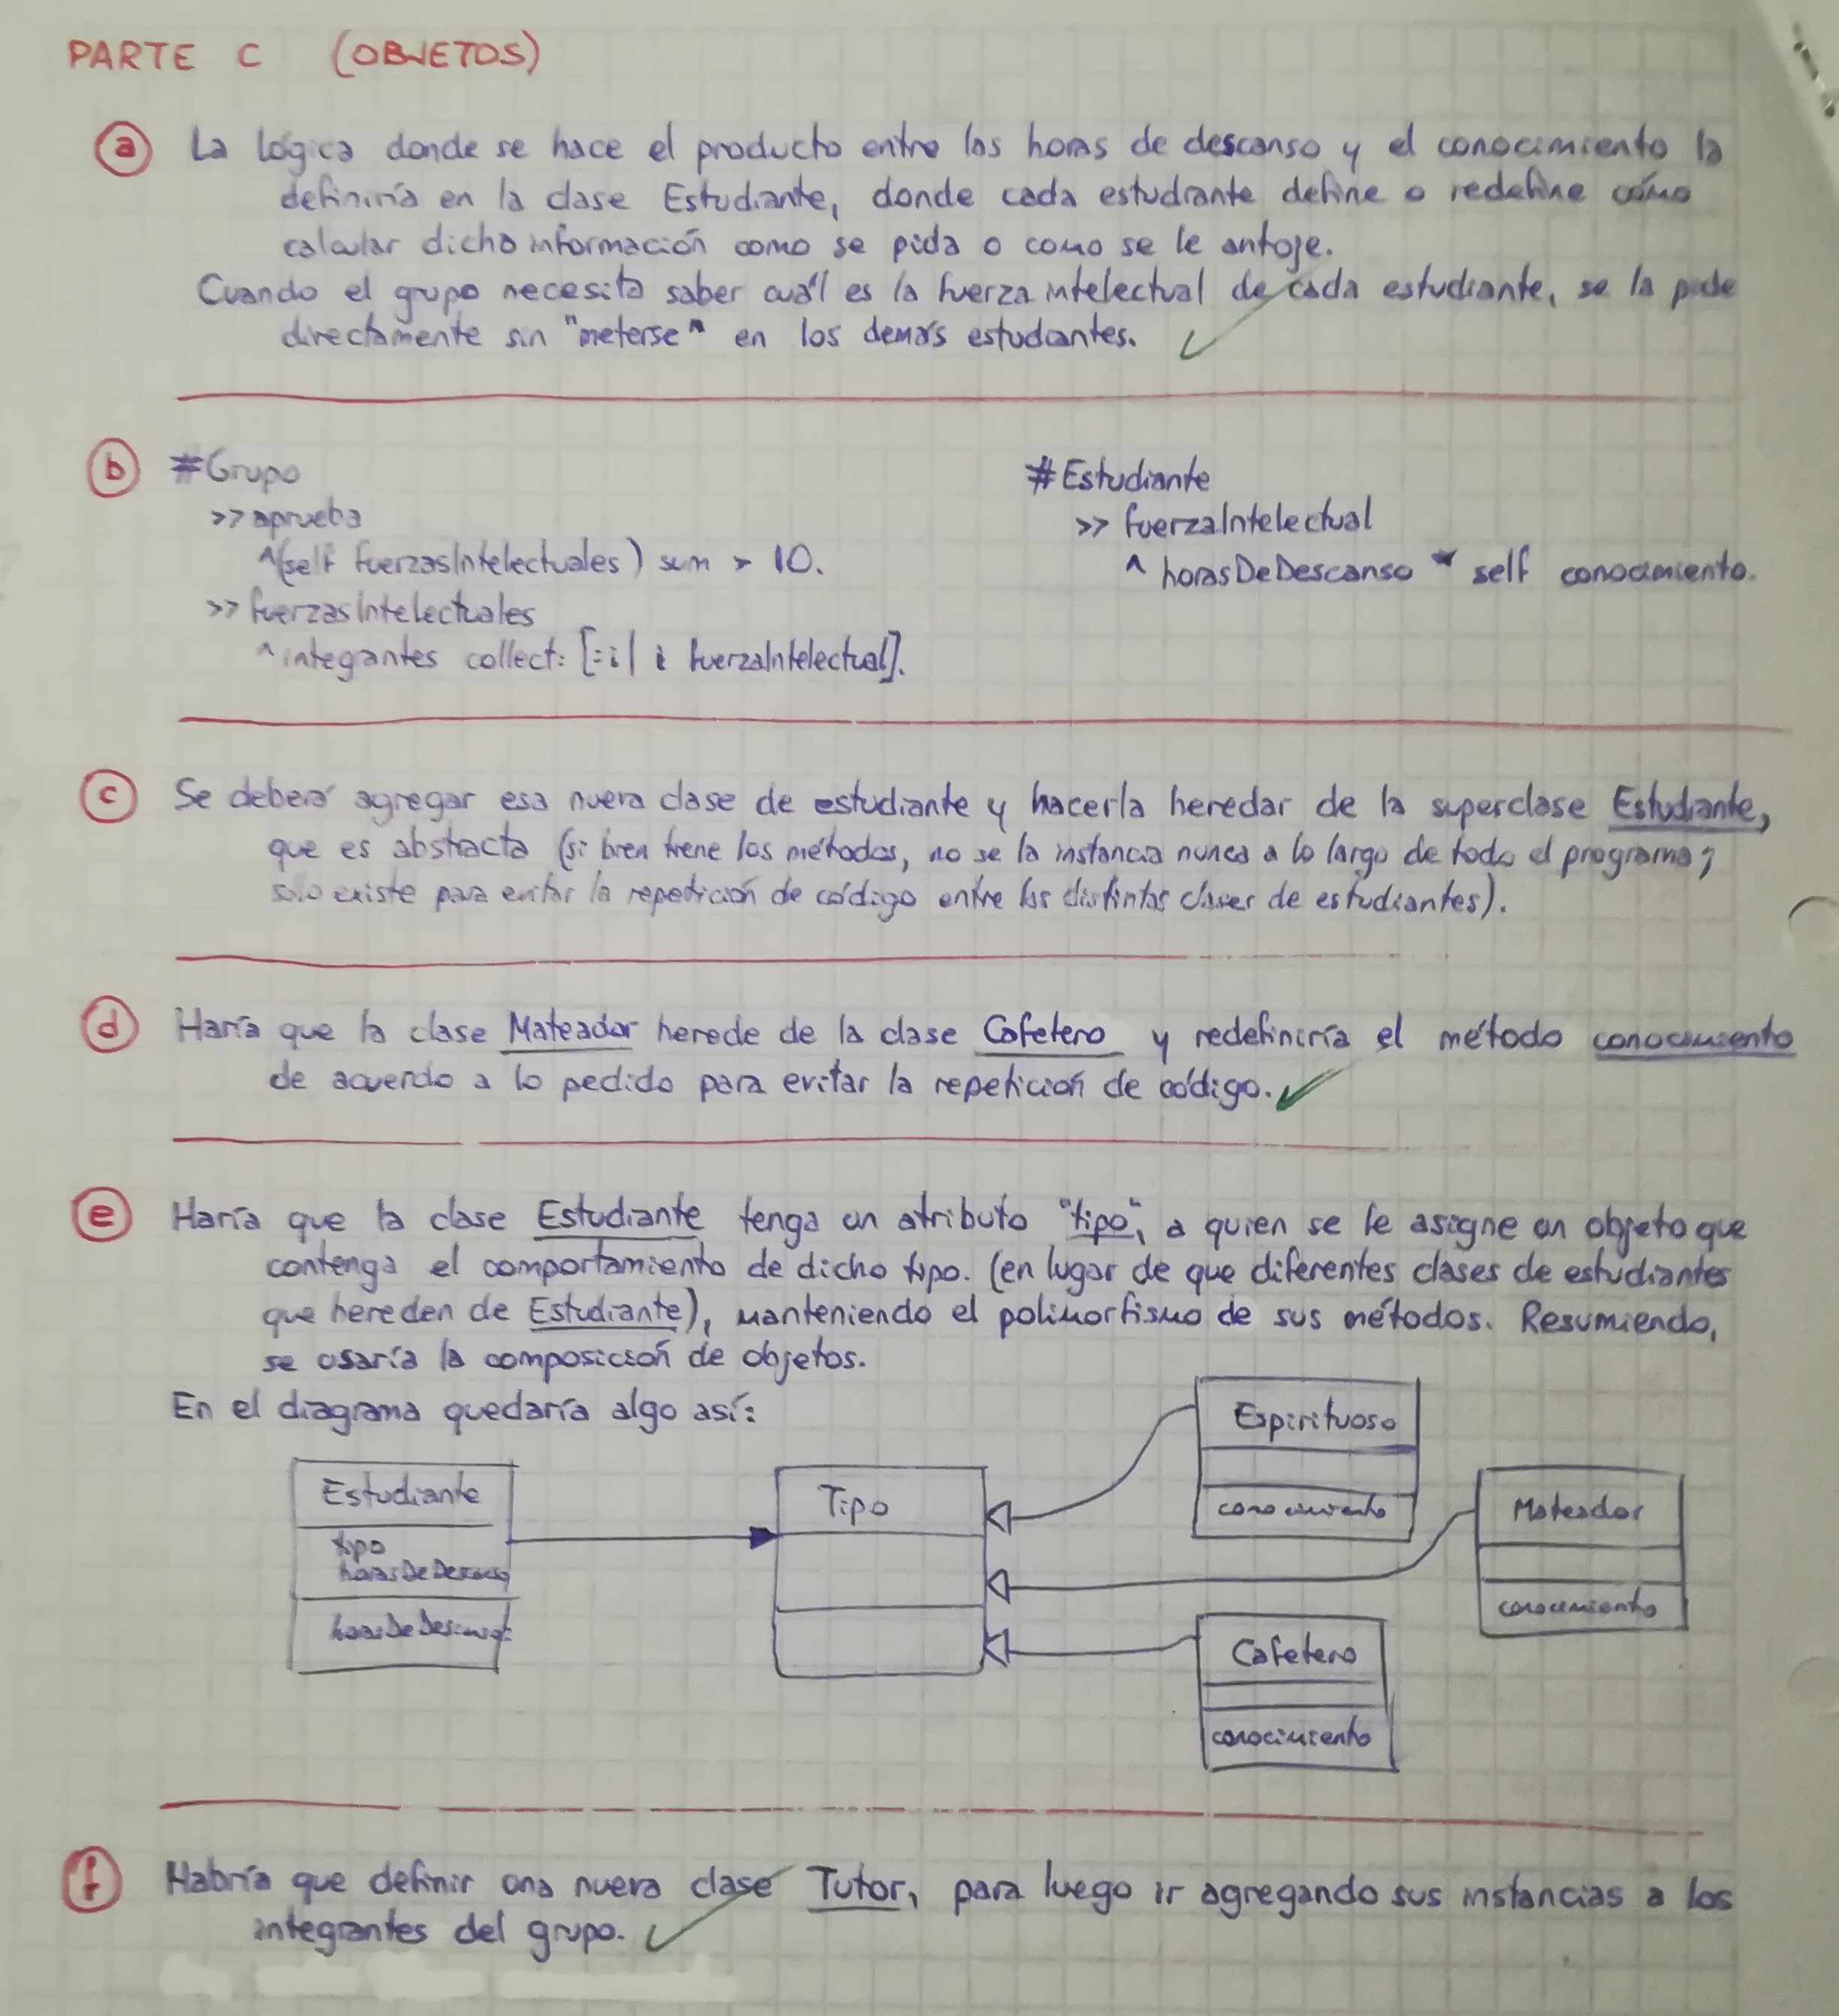 PARTE C (OBJETOS)
a La lógica donde se hace el producto entre las horas de descanso y el conocimiento la
definiría en la clase Estudiante, donde cada estudiante define o redefine cómo
calcular dicha información como se pida o como se le antoje.
Cuando el grupo necesita saber cuál es la fuerza intelectual de cada estudiante, se la pide
directamente sin "meterse" en los demás estudiantes.
b #Grupo
>> aprueba
^(self fuerzasIntelectuales) sum > 10.
>> fuerzasIntelectuales
^integrantes collect: [:i| i fuerzaIntelectual].
#Estudiante
>> fuerzaIntelectual
^ horasDeDescanso * self conocimiento.
c Se deberá agregar esa nueva clase de estudiante y hacerla heredar de la superclase Estudiante,
que es abstracta (si bien tiene los métodos, no se la instancia nunca a lo largo de todo el programa;
solo existe para evitar la repetición de código entre las distintas clases de estudiantes).
d Haría que la clase Mateador herede de la clase Cafetero y redefiniría el método conocimiento
de acuerdo a lo pedido para evitar la repetición de código.
e Haría que la clase Estudiante tenga un atributo "tipo", a quien se le asigne un objeto que
contenga el comportamiento de dicho tipo. (en lugar de que diferentes clases de estudiantes
que hereden de Estudiante), manteniendo el polimorfismo de sus métodos. Resumiendo,
se usaría la composición de objetos.
En el diagrama quedaría algo así:
Estudiante
tipo
horasDeDescanso
horasDeDescanso:
Tipo
Espirituoso
conocimiento
Mateador
conocimiento
Cafetero
conocimiento
f Habría que definir una nueva clase Tutor, para luego ir agregando sus instancias a los
integrantes del grupo.